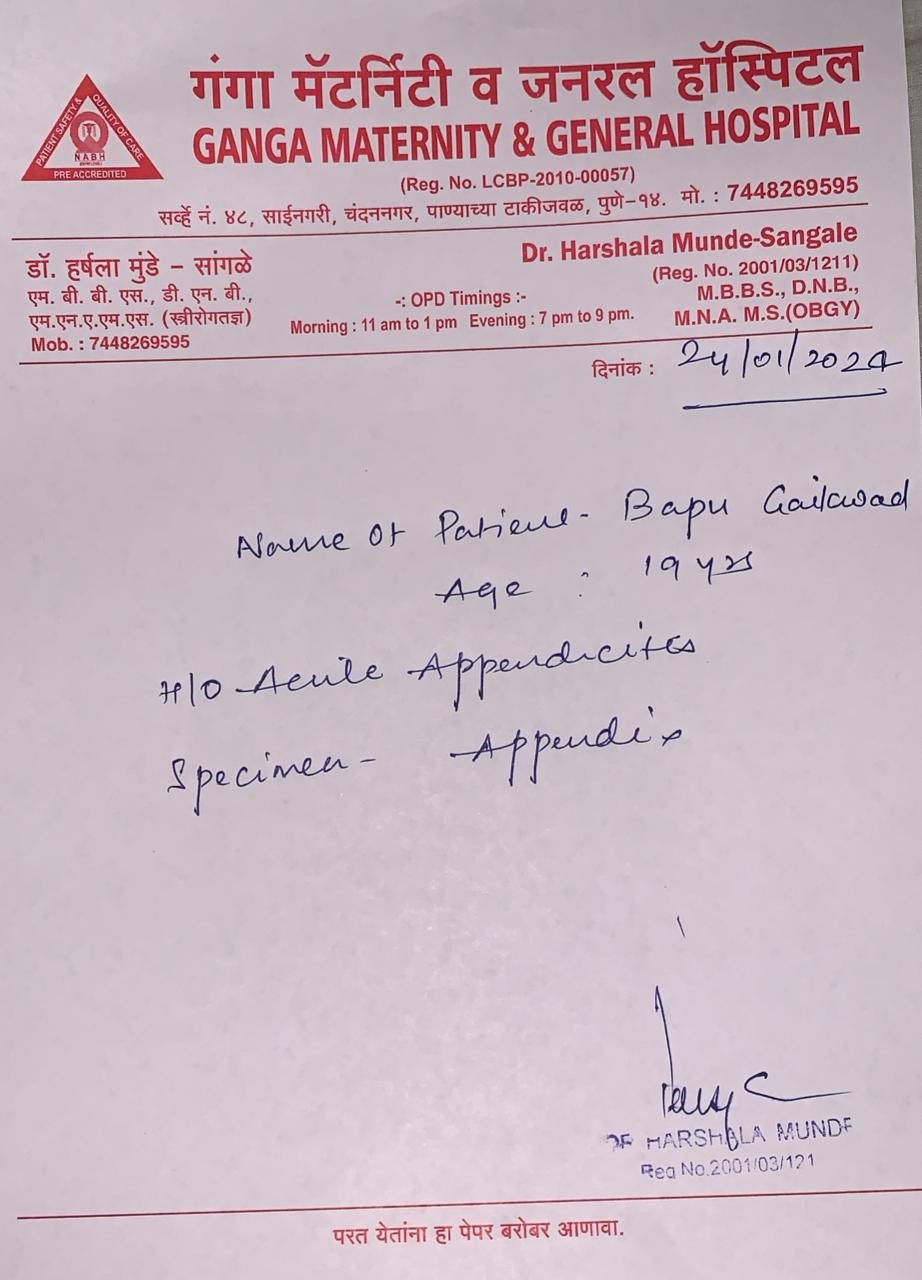 गंगा मॅटर्निटी व जनरल हॉस्पिटल
GANGA MATERNITY & GENERAL HOSPITAL
PATIENT SAFETY & QUALITY OF CARE
NABH
PRE ACCREDITED
(Reg. No. LCBP-2010-00057)
सर्व्हे नं. ४८, साईनगरी, चंदननगर, पाण्याच्या टाकीजवळ, पुणे-१४. मो. : 7448269595
डॉ. हर्षला मुंडे - सांगळे
एम. बी. बी. एस., डी. एन. बी.,
एम.एन.ए.एम.एस. (स्त्रीरोगतज्ञ)
Mob. : 7448269595
-: OPD Timings :-
Morning : 11 am to 1 pm Evening : 7 pm to 9 pm.
Dr. Harshala Munde-Sangale
(Reg. No. 2001/03/1211)
M.B.B.S., D.N.B.,
M.N.A. M.S.(OBGY)
दिनांक : 24/01/2024
Name Of Patient - Bapu Gaikwad
Age : 19 yrs
H/O Acute Appendicites
Specimen - Appendix
DR HARSHALA MUNDE
Reg No.2001/03/121
परत येतांना हा पेपर बरोबर आणावा.